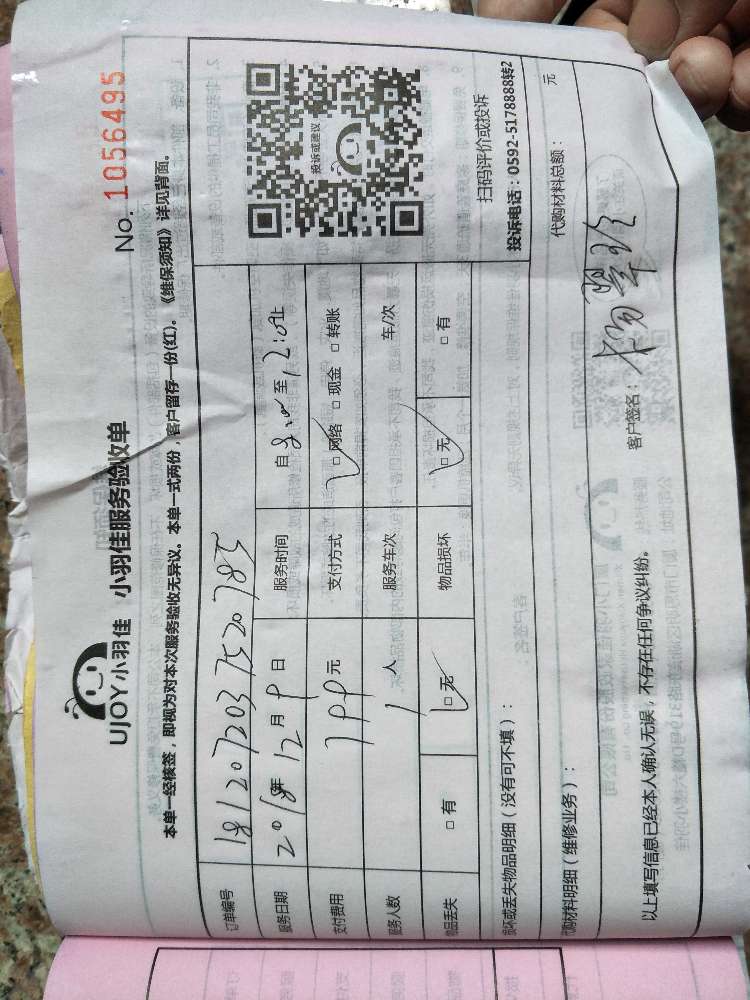 UJOY小羽佳 小羽佳服务验收单 No. 1056495
本单一经核签，即视为对本次服务验收无异议。本单一式两份，客户留存一份(红)。《维保须知》详见背面。
订单编号 1812072037520785
服务日期 2018年 12月 9日 服务时间 自8:00至12:00止
支付费用 199元 支付方式 □网络 □现金 □转账
服务人数 1人 服务车次 车/次
物品丢失 □有 □无 物品损坏 □无 □有
投诉或建议
扫码评价或投诉
投诉电话：0592-5178888转2
损坏或丢失物品明细（没有可不填）：
代购材料明细（维修业务）： 代购材料总额： 元
以上填写信息已经本人确认无误，不存在任何争议纠纷。 客户签名：